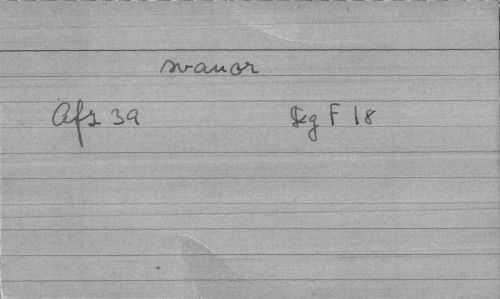 svanor
Afz 39 Lg F 18